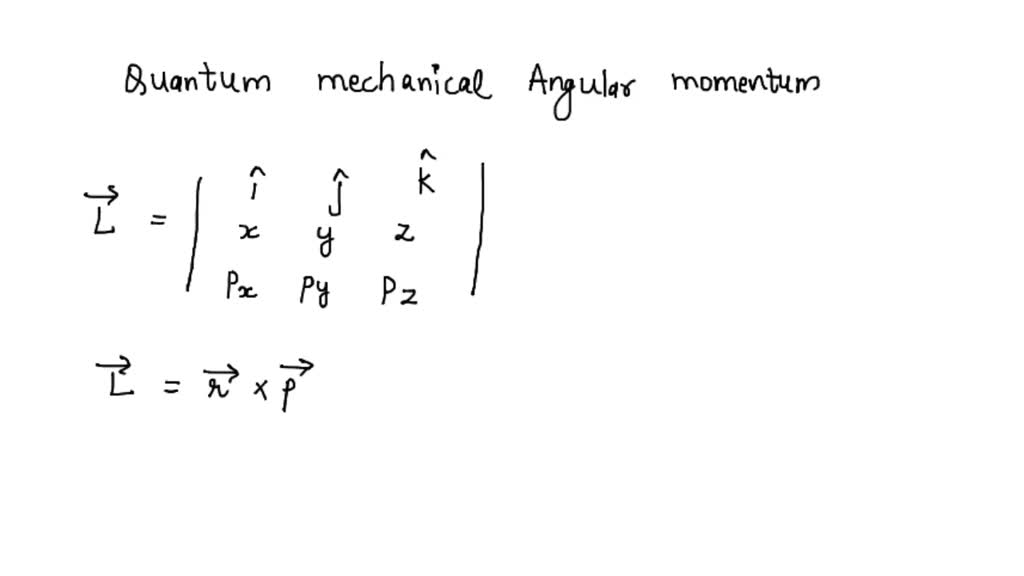 Quantum mechanical Angular momentum
î ĵ k̂
L⃗ = | x y z |
Px Py Pz
L⃗ = r⃗ × p⃗